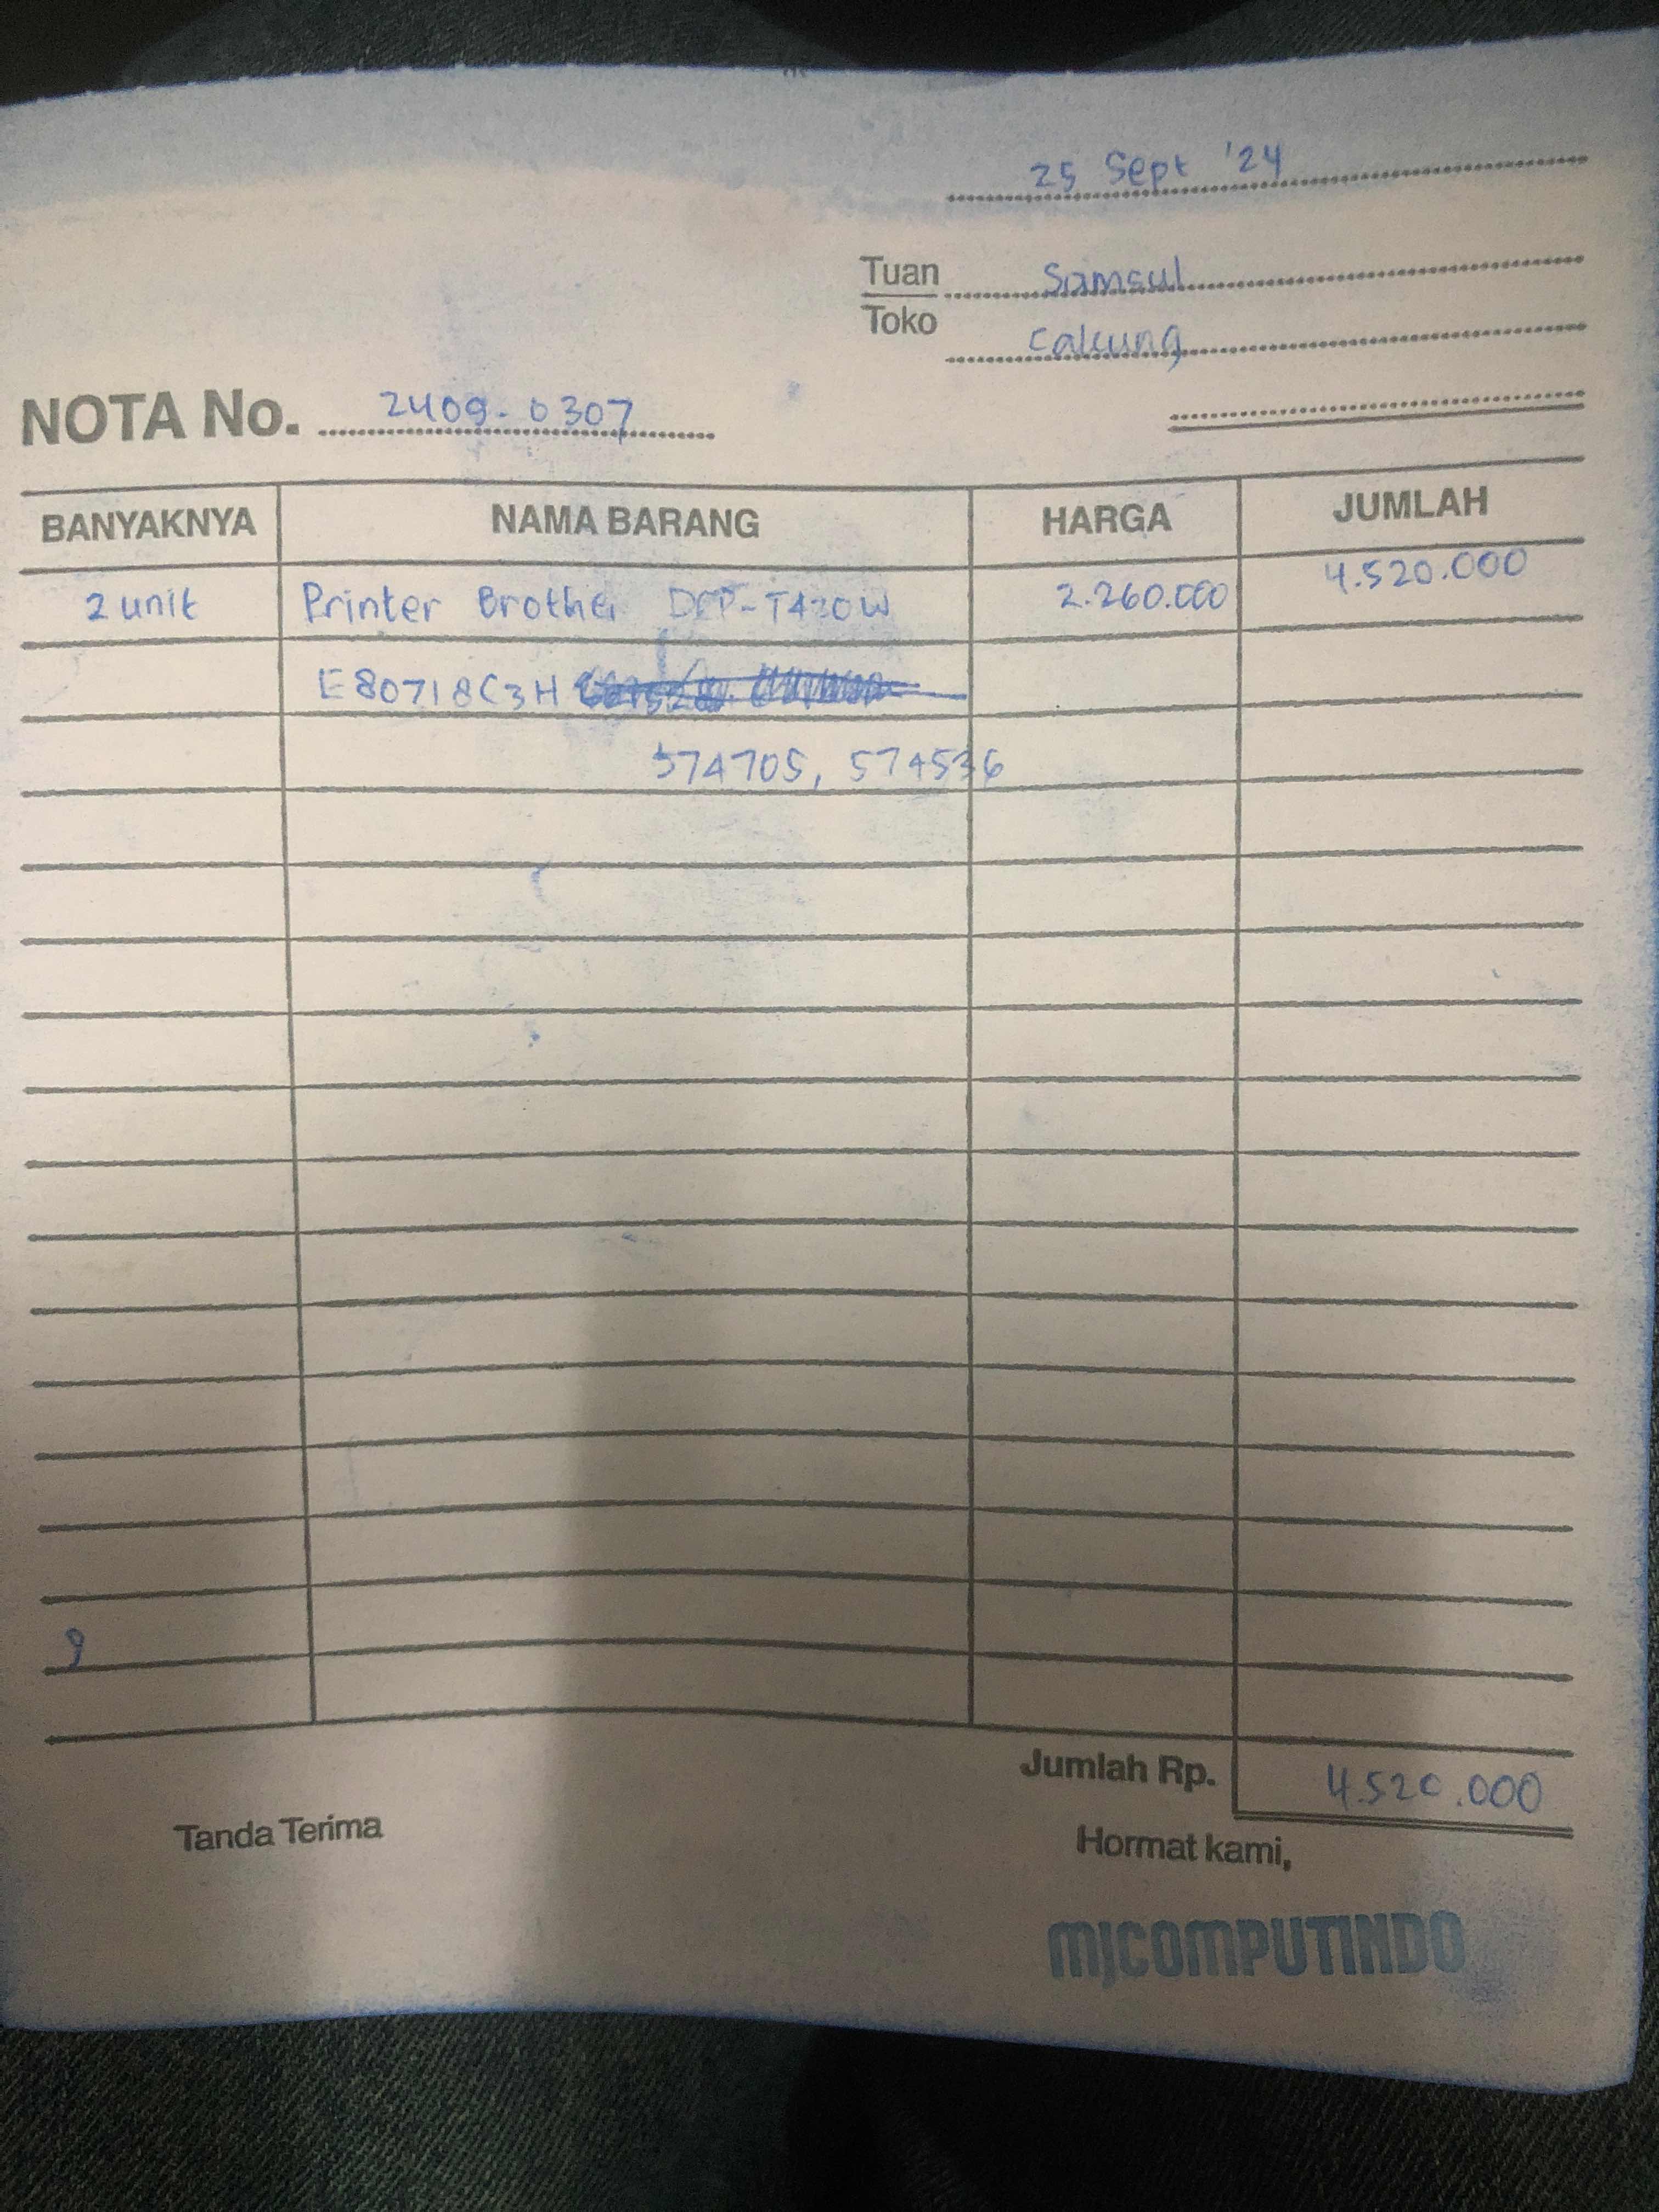 25 Sept '24
Tuan Samsul
Toko Cakung
NOTA No. 2409-0307
BANYAKNYA NAMA BARANG HARGA JUMLAH
2 unit Printer Brother DCP-T420W 2.260.000 4.520.000
E80718C3H
574705, 574536
9
Jumlah Rp. 4.520.000
Tanda Terima Hormat kami,
MJCOMPUTINDO